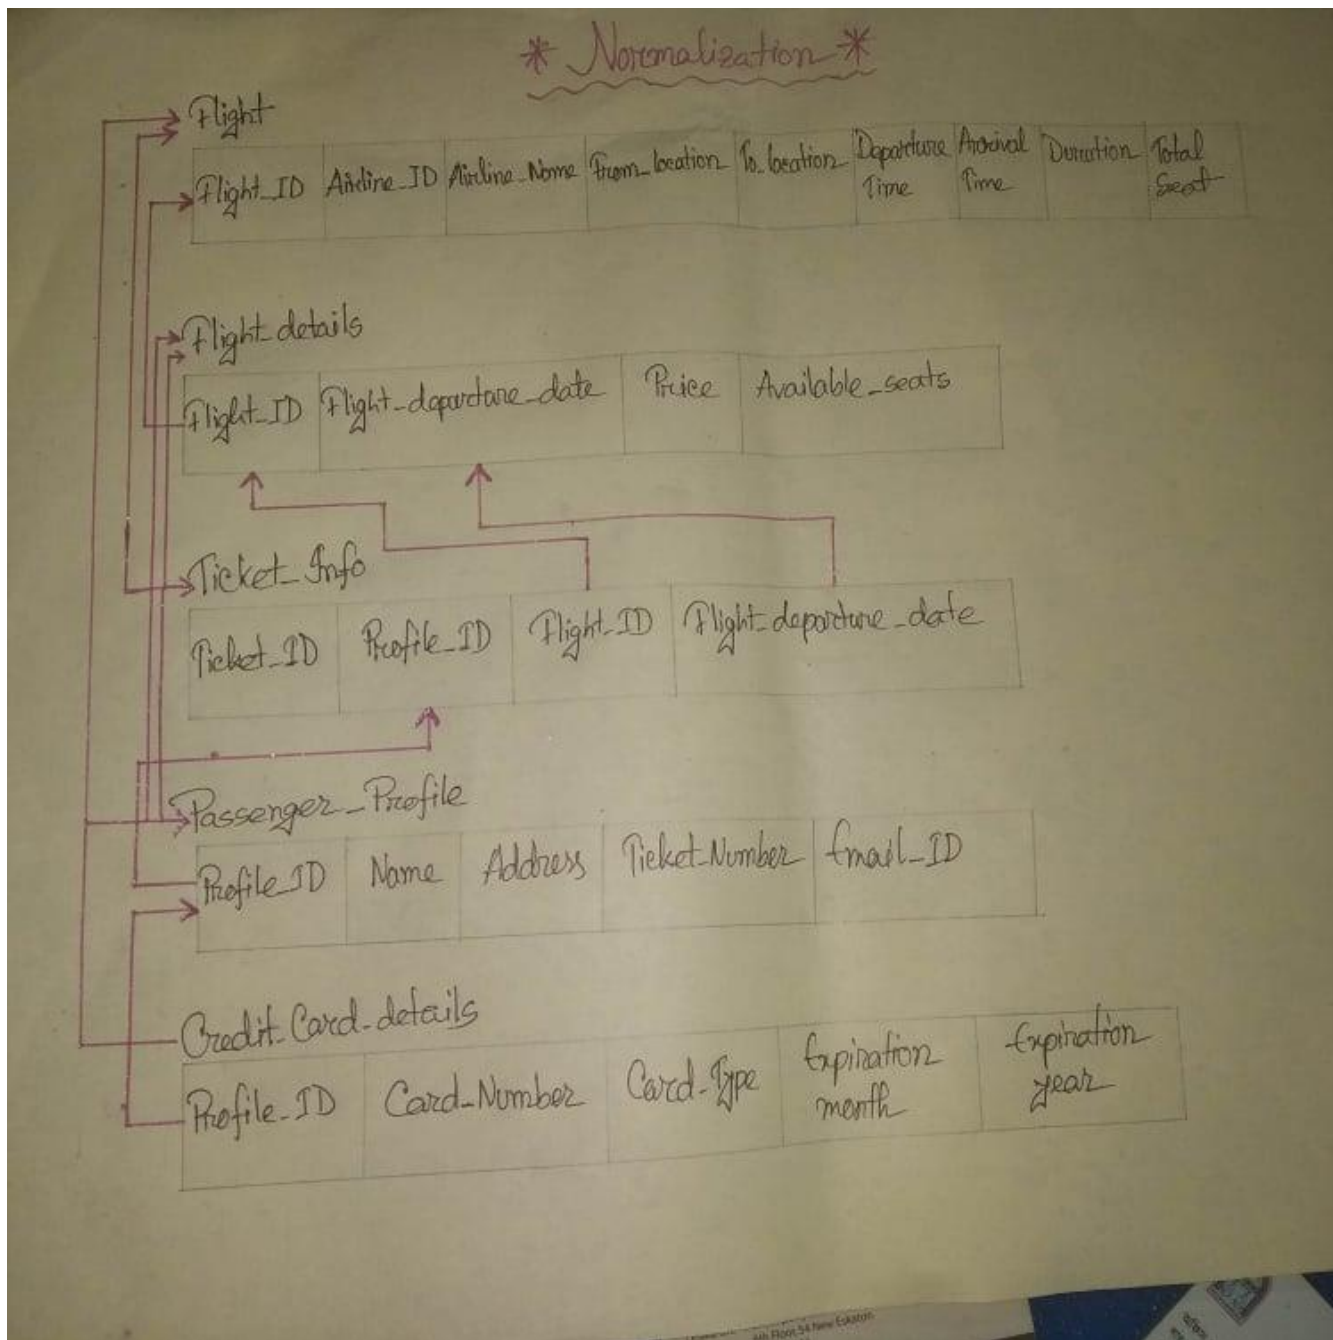 * Normalization *
Flight
Flight_ID Airline_ID Airline_Name From_location To_location Departure Time Arrival Time Duration Total Seat
Flight_details
Flight_ID Flight_departure_date Price Available_seats
Ticket_Info
Ticket_ID Profile_ID Flight_ID Flight_departure_date
Passenger_Profile
Profile_ID Name Address Ticket_Number Email_ID
Credit_Card_details
Profile_ID Card_Number Card_Type Expiration month Expiration year
4th Floor 54 New Eskaton